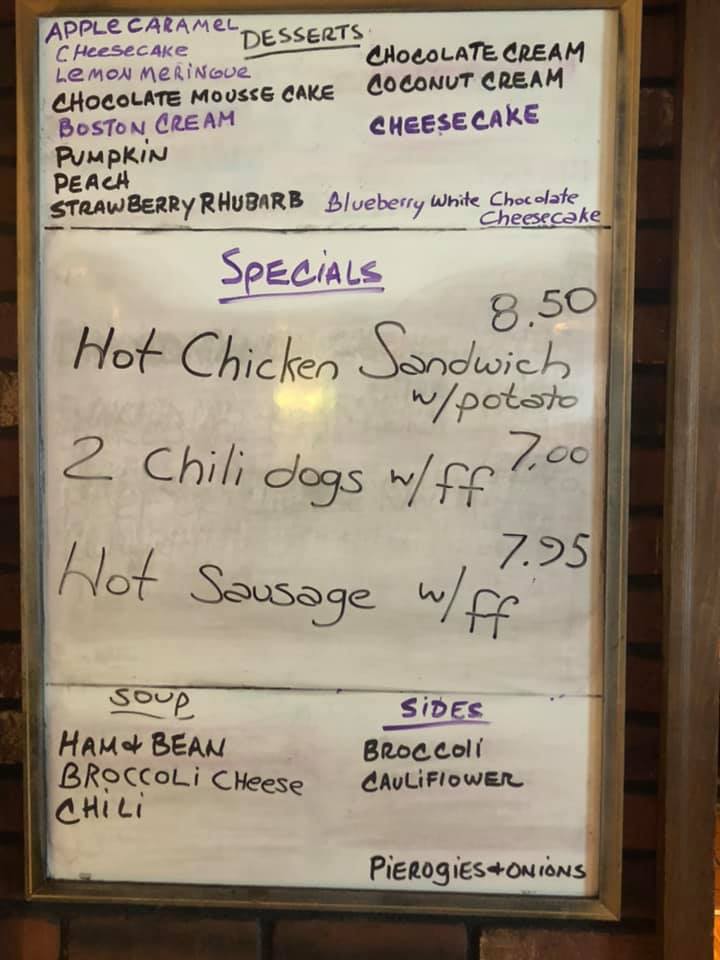 DESSERTS
APPLE CARAMEL
CHEESECAKE
LEMON MERINGUE
CHOCOLATE MOUSSE CAKE
BOSTON CREAM
PUMPKIN
PEACH
STRAWBERRY RHUBARB
CHOCOLATE CREAM
COCONUT CREAM
CHEESECAKE
Blueberry White Chocolate
Cheesecake
SPECIALS
8.50
Hot Chicken Sandwich
w/potato
2 Chili dogs w/ff 7.00
7.95
Hot Sausage w/ff
SOUP
HAM & BEAN
BROCCOLI CHEESE
CHILI
SIDES
BROCCOLI
CAULIFLOWER
PIEROGIES+ONIONS